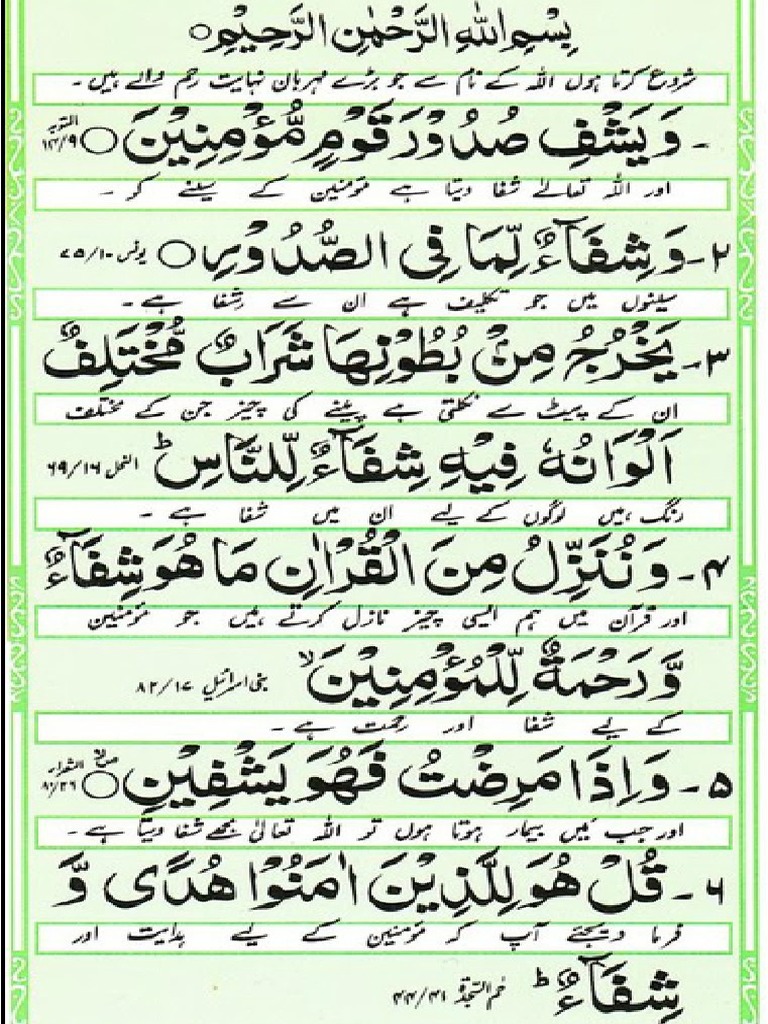 بِسْمِ اللهِ الرَّحْمٰنِ الرَّحِيْمِ ○
شروع کرتا ہوں اللہ کے نام سے جو بڑے مہربان نہایت رحم والے ہیں۔
۱۔ وَيَشْفِ صُدُوْرَ قَوْمٍ مُّؤْمِنِيْنَ ○ التوبہ ۱۴/۹
اور اللہ تعالےٰ شفا دیتا ہے مؤمنین کے سینے کو ۔
۲۔ وَشِفَآءٌ لِّمَا فِى الصُّدُوْرِ ○ یونس ۷۵/۱۰
سینوں میں جو تکلیف ہے ان سے شفا ہے۔
۳۔ يَخْرُجُ مِنْۢ بُطُوْنِهَا شَرَابٌ مُّخْتَلِفٌ
ان کے پیٹ سے نکلتی ہے پینے کی چیز جن کے مختلف
اَلْوَانُهٗ فِيْهِ شِفَآءٌ لِّلنَّاسِ ؕ النحل ۶۹/۱۶
رنگ ہیں لوگوں کے لیے ان میں شفا ہے ۔
۴۔ وَنُنَزِّلُ مِنَ الْقُرْاٰنِ مَا هُوَ شِفَآءٌ
اور قرآن میں ہم ایسی چیز نازل کرتے ہیں جو مؤمنین
وَّرَحْمَةٌ لِّلْمُؤْمِنِيْنَ ۙ بنی اسرائیل ۸۲/۱۷
کے لیے شفا اور رحمت ہے۔
۵۔ وَاِذَا مَرِضْتُ فَهُوَ يَشْفِيْنِ ○ الشعراء ۸۰/۲۶
اور جب میں بیمار ہوتا ہوں تو اللہ تعالیٰ مجھے شفا دیتا ہے۔
۶۔ قُلْ هُوَ لِلَّذِيْنَ اٰمَنُوْا هُدًى وَّ
فرما دیجئے آپ کہ مؤمنین کے لیے ہدایت اور
شِفَآءٌ ؕ حٰم السجدۃ ۴۴/۴۱